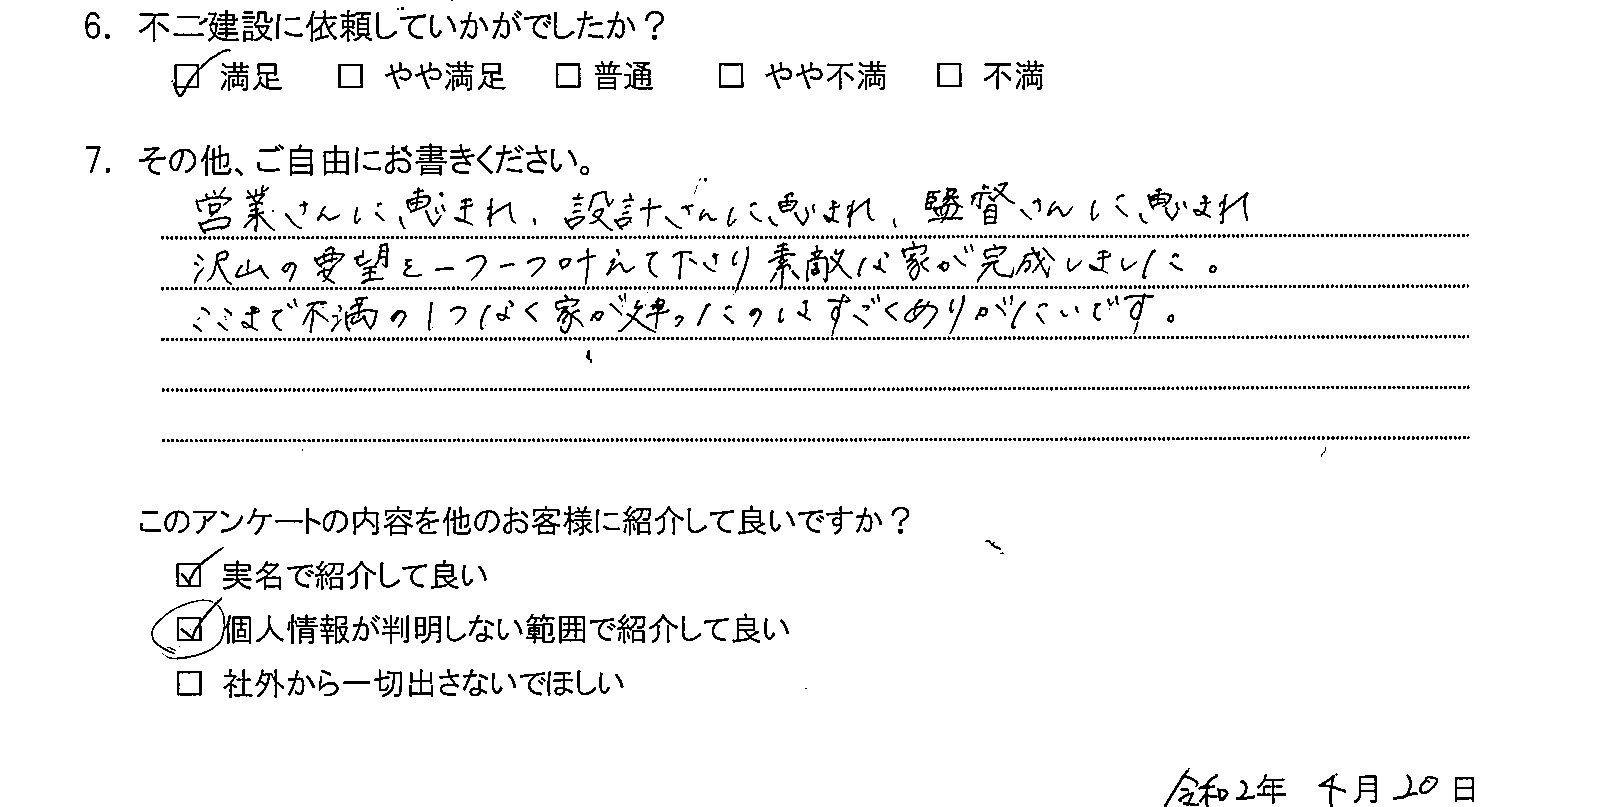 6. 不二建設に依頼していかがでしたか？
☑ 満足 □ やや満足 □ 普通 □ やや不満 □ 不満
7. その他、ご自由にお書きください。
営業さんに恵まれ、設計さんに恵まれ、監督さんに恵まれ
沢山の要望を一つ一つ叶えて下さり素敵な家が完成しました。
ここまで不満の1つなく家が建ったのはすごくありがたいです。
このアンケートの内容を他のお客様に紹介して良いですか？
☑ 実名で紹介して良い
☑ 個人情報が判明しない範囲で紹介して良い
□ 社外から一切出さないでほしい
令和2年 4月20日